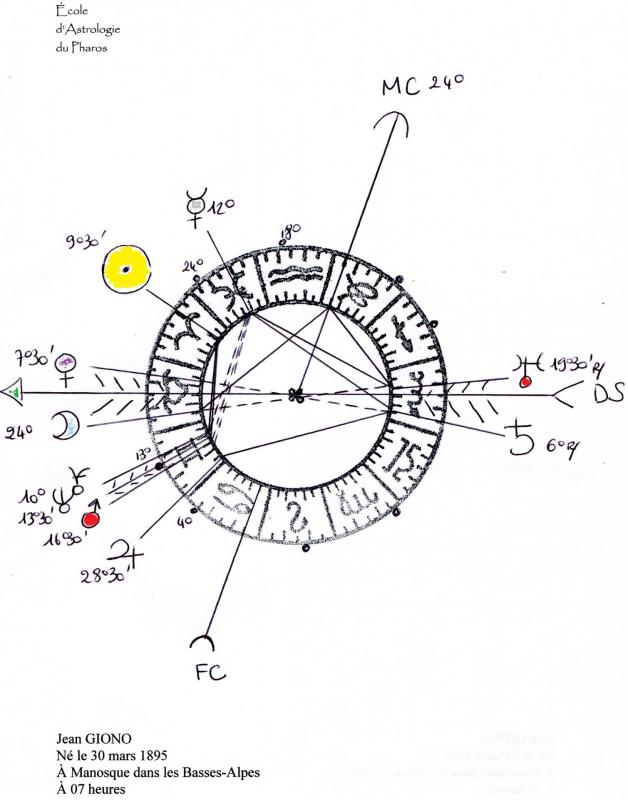 École
d'Astrologie
du Pharos
MC 24°
☿ 12°
9°30'
18°
24°
7°30' ♀
♅ 19°30' R
DS
24° ☽
♄ 6° R
13°
10° ♆
13°30'
♂
16°30'
4°
♃
28°30'
FC
Jean GIONO
Né le 30 mars 1895
À Manosque dans les Basses-Alpes
À 07 heures